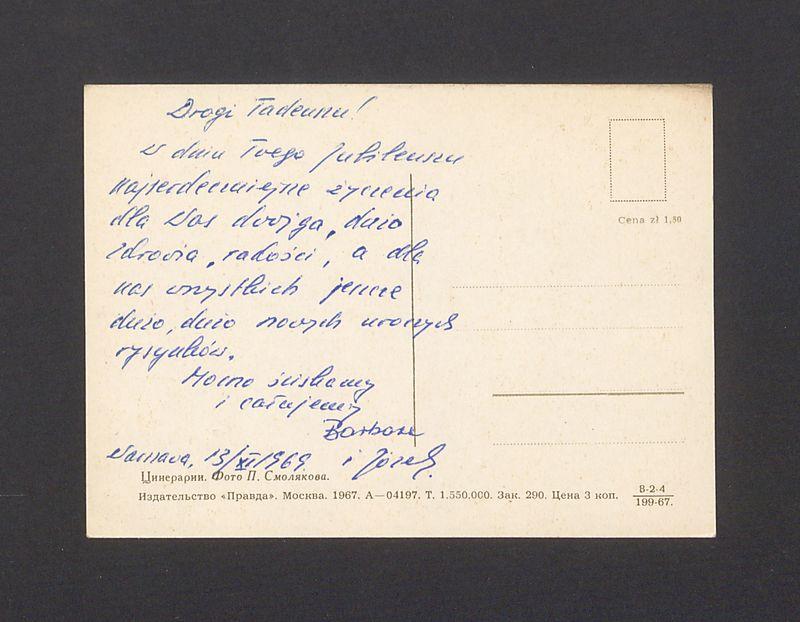 Drogi Tadeuszu!
W dniu Twego Jubileuszu
najserdeczniejsze życzenia
dla Was dwojga, dużo
zdrowia, radości, a dla
nas wszystkich jeszcze
dużo, dużo nowych uroczych
rysunków.
Mocno ściskamy
i całujemy
Barbara
Warszawa, 13/XI/1969. i Józek.
Cena zł 1,80
Цинерарии. Фото П. Смолякова.
Издательство «Правда». Москва. 1967. А—04197. Т. 1.550.000. Зак. 290. Цена 3 коп.
8-2-4
199-67.